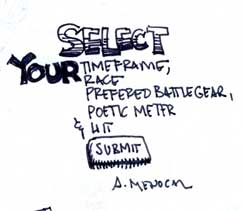 SELECT
YOUR TIMEFRAME,
RACE
PREFERED BATTLEGEAR,
POETIC METER
& WIT
SUBMIT